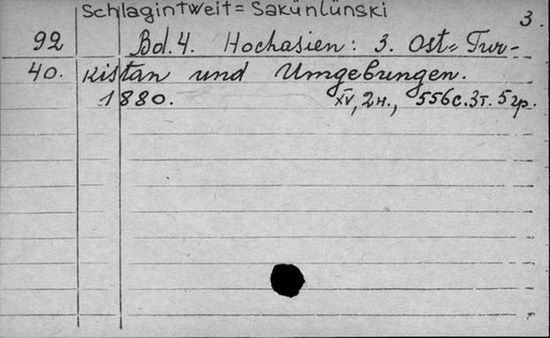 Schlagintweit= Sakünlünski
3.
92 Bd. 4. Hochasien: 3. Ost= Tur-
40. kistan und Umgebungen.
1880. XV, 2н., 556с. 3т. 5гр.